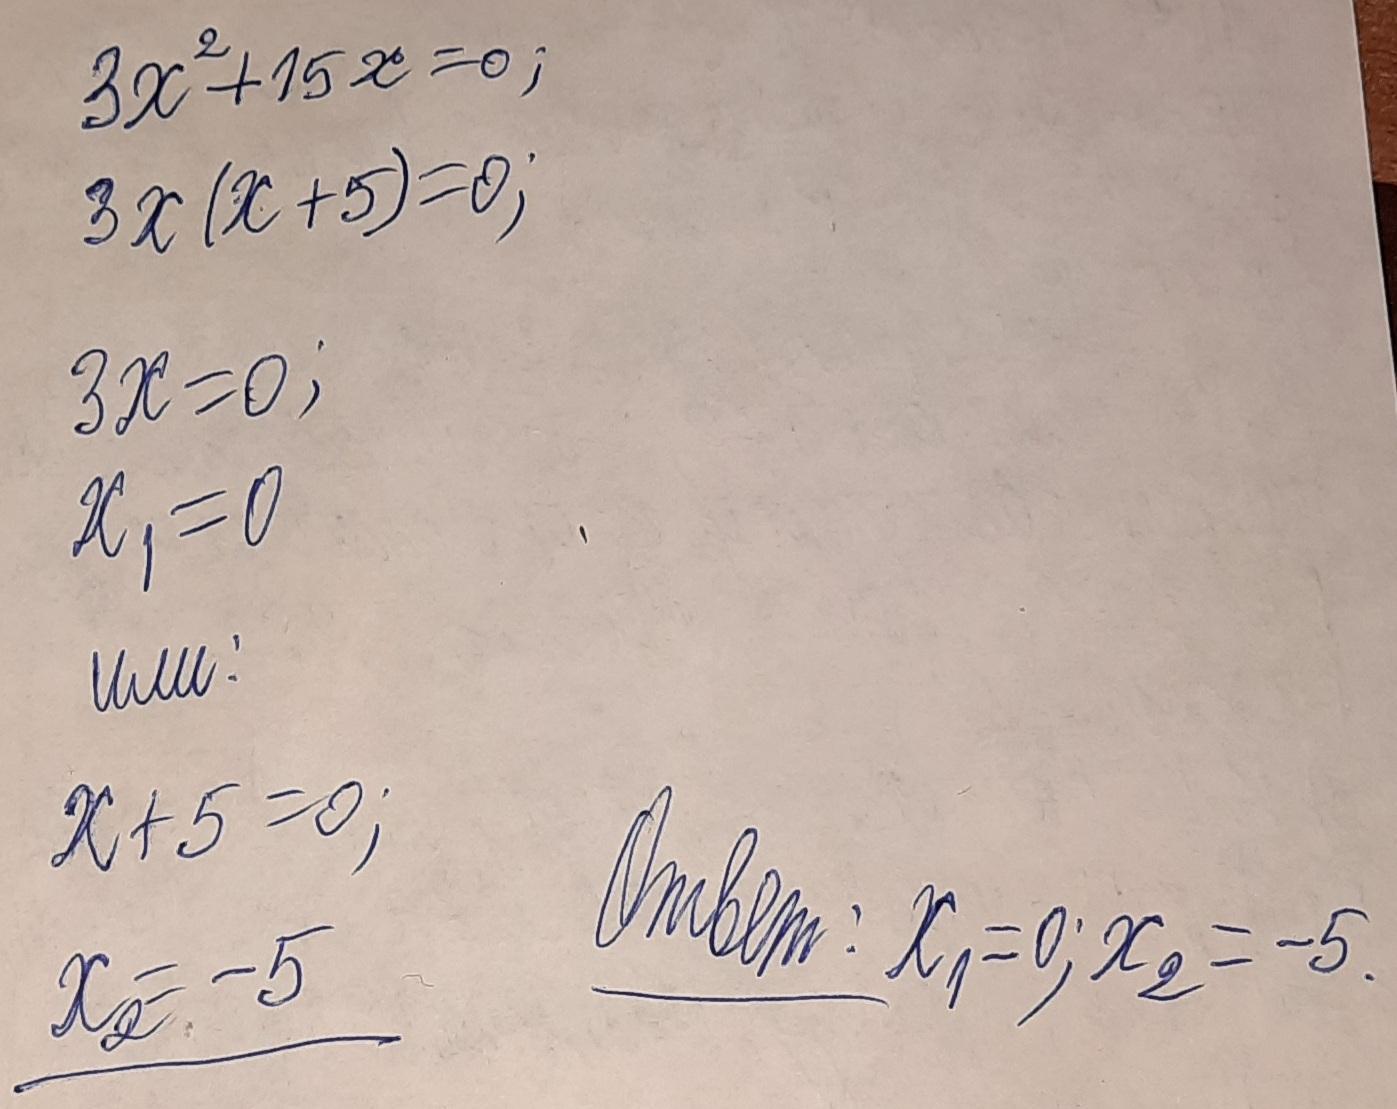 3x²+15x=0;
3x(x+5)=0;
3x=0;
x₁=0
или:
x+5=0;
x₂=-5
Ответ: x₁=0; x₂=-5.